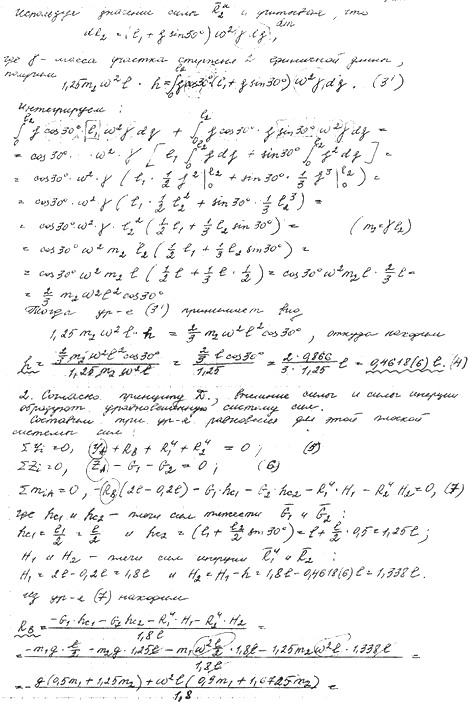 Используя значение силы R̄₂ᵘ и учитывая, что
dR₂ = (l₁ + ξ sin30°) ω² γ dξ,
dm
где γ - масса участка стержня 2 единичной длины,
получим
1,25m₂ω²l · h = ∫₀^l₂ ξ cos30° (l₁ + ξ sin30°) ω² γ dξ. (3')
Интегрируем:
∫₀^l₂ ξ cos30° l₁ ω² γ dξ + ∫₀^l₂ ξ cos30° · ξ sin30° ω² γ dξ =
= cos30° · ω² · γ [ l₁ ∫₀^l₂ ξ dξ + sin30° ∫₀^l₂ ξ² dξ ] =
= cos30° · ω² · γ ( l₁ · 1/2 ξ² |₀^l₂ + sin30° · 1/3 ξ³ |₀^l₂ ) =
= cos30° ω² γ ( l₁ · 1/2 l₂² + sin30° · 1/3 l₂³ ) =
= cos30° ω² γ · l₂² ( 1/2 l₁ + 1/3 l₂ sin30° ) = (m₂ = γ l₂)
= cos30° ω² m₂ l₂ ( 1/2 l₁ + 1/3 l₂ sin30° ) =
= cos30° ω² m₂ l ( 1/2 l + 1/3 l · 1/2 ) = cos30° ω² m₂ l · 2/3 l =
= 2/3 m₂ ω² l² cos30°
Тогда ур-е (3') принимает вид
1,25 m₂ ω² l · h = 2/3 m₂ ω² l² cos30°, откуда находим
h = (2/3 m₂ ω² l² cos30°)/(1,25 m₂ ω² l) = (2/3 l cos30°)/1,25 = (2 · 0,866)/(3 · 1,25) l = 0,4618(6) l. (4)
2. Согласно принципу Д., внешние силы и силы инерции
образуют уравновешенную систему сил.
Составим три ур-я равновесия для этой плоской
системы сил:
ΣYi = 0, YA + RB + R₁ᵘ + R₂ᵘ = 0; (5)
ΣZi = 0, ZA - G₁ - G₂ = 0; (6)
ΣmiA = 0, -RB(2l - 0,2l) - G₁·hc₁ - G₂·hc₂ - R₁ᵘ·H₁ - R₂ᵘ H₂ = 0, (7)
где hc₁ и hc₂ - плечи сил тяжести Ḡ₁ и Ḡ₂:
hc₁ = l₁/2 = l/2 и hc₂ = (l₁ + l₂/2 sin30°) = l + l/2 · 0,5 = 1,25l;
H₁ и H₂ - плечи сил инерции R̄₁ᵘ и R̄₂ᵘ:
H₁ = 2l - 0,2l = 1,8l и H₂ = H₁ - h = 1,8l - 0,4618(6)l = 1,338l.
Из ур-я (7) находим
RB = (-G₁·hc₁ - G₂ hc₂ - R₁ᵘ·H₁ - R₂ᵘ·H₂)/1,8l =
= (-m₁g · l/2 - m₂g · 1,25l - m₁ω² l/2 · 1,8l - 1,25m₂ω²l · 1,338l)/1,8l =
= -(g(0,5m₁ + 1,25m₂) + ω²l(0,9m₁ + 1,6725m₂))/1,8 =